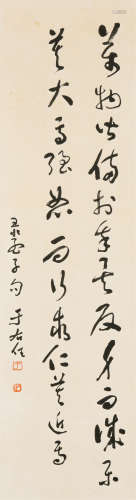 萬物皆備於我矣反身而誠樂
莫大焉強恕而行求仁莫近焉
孟子句 于右任